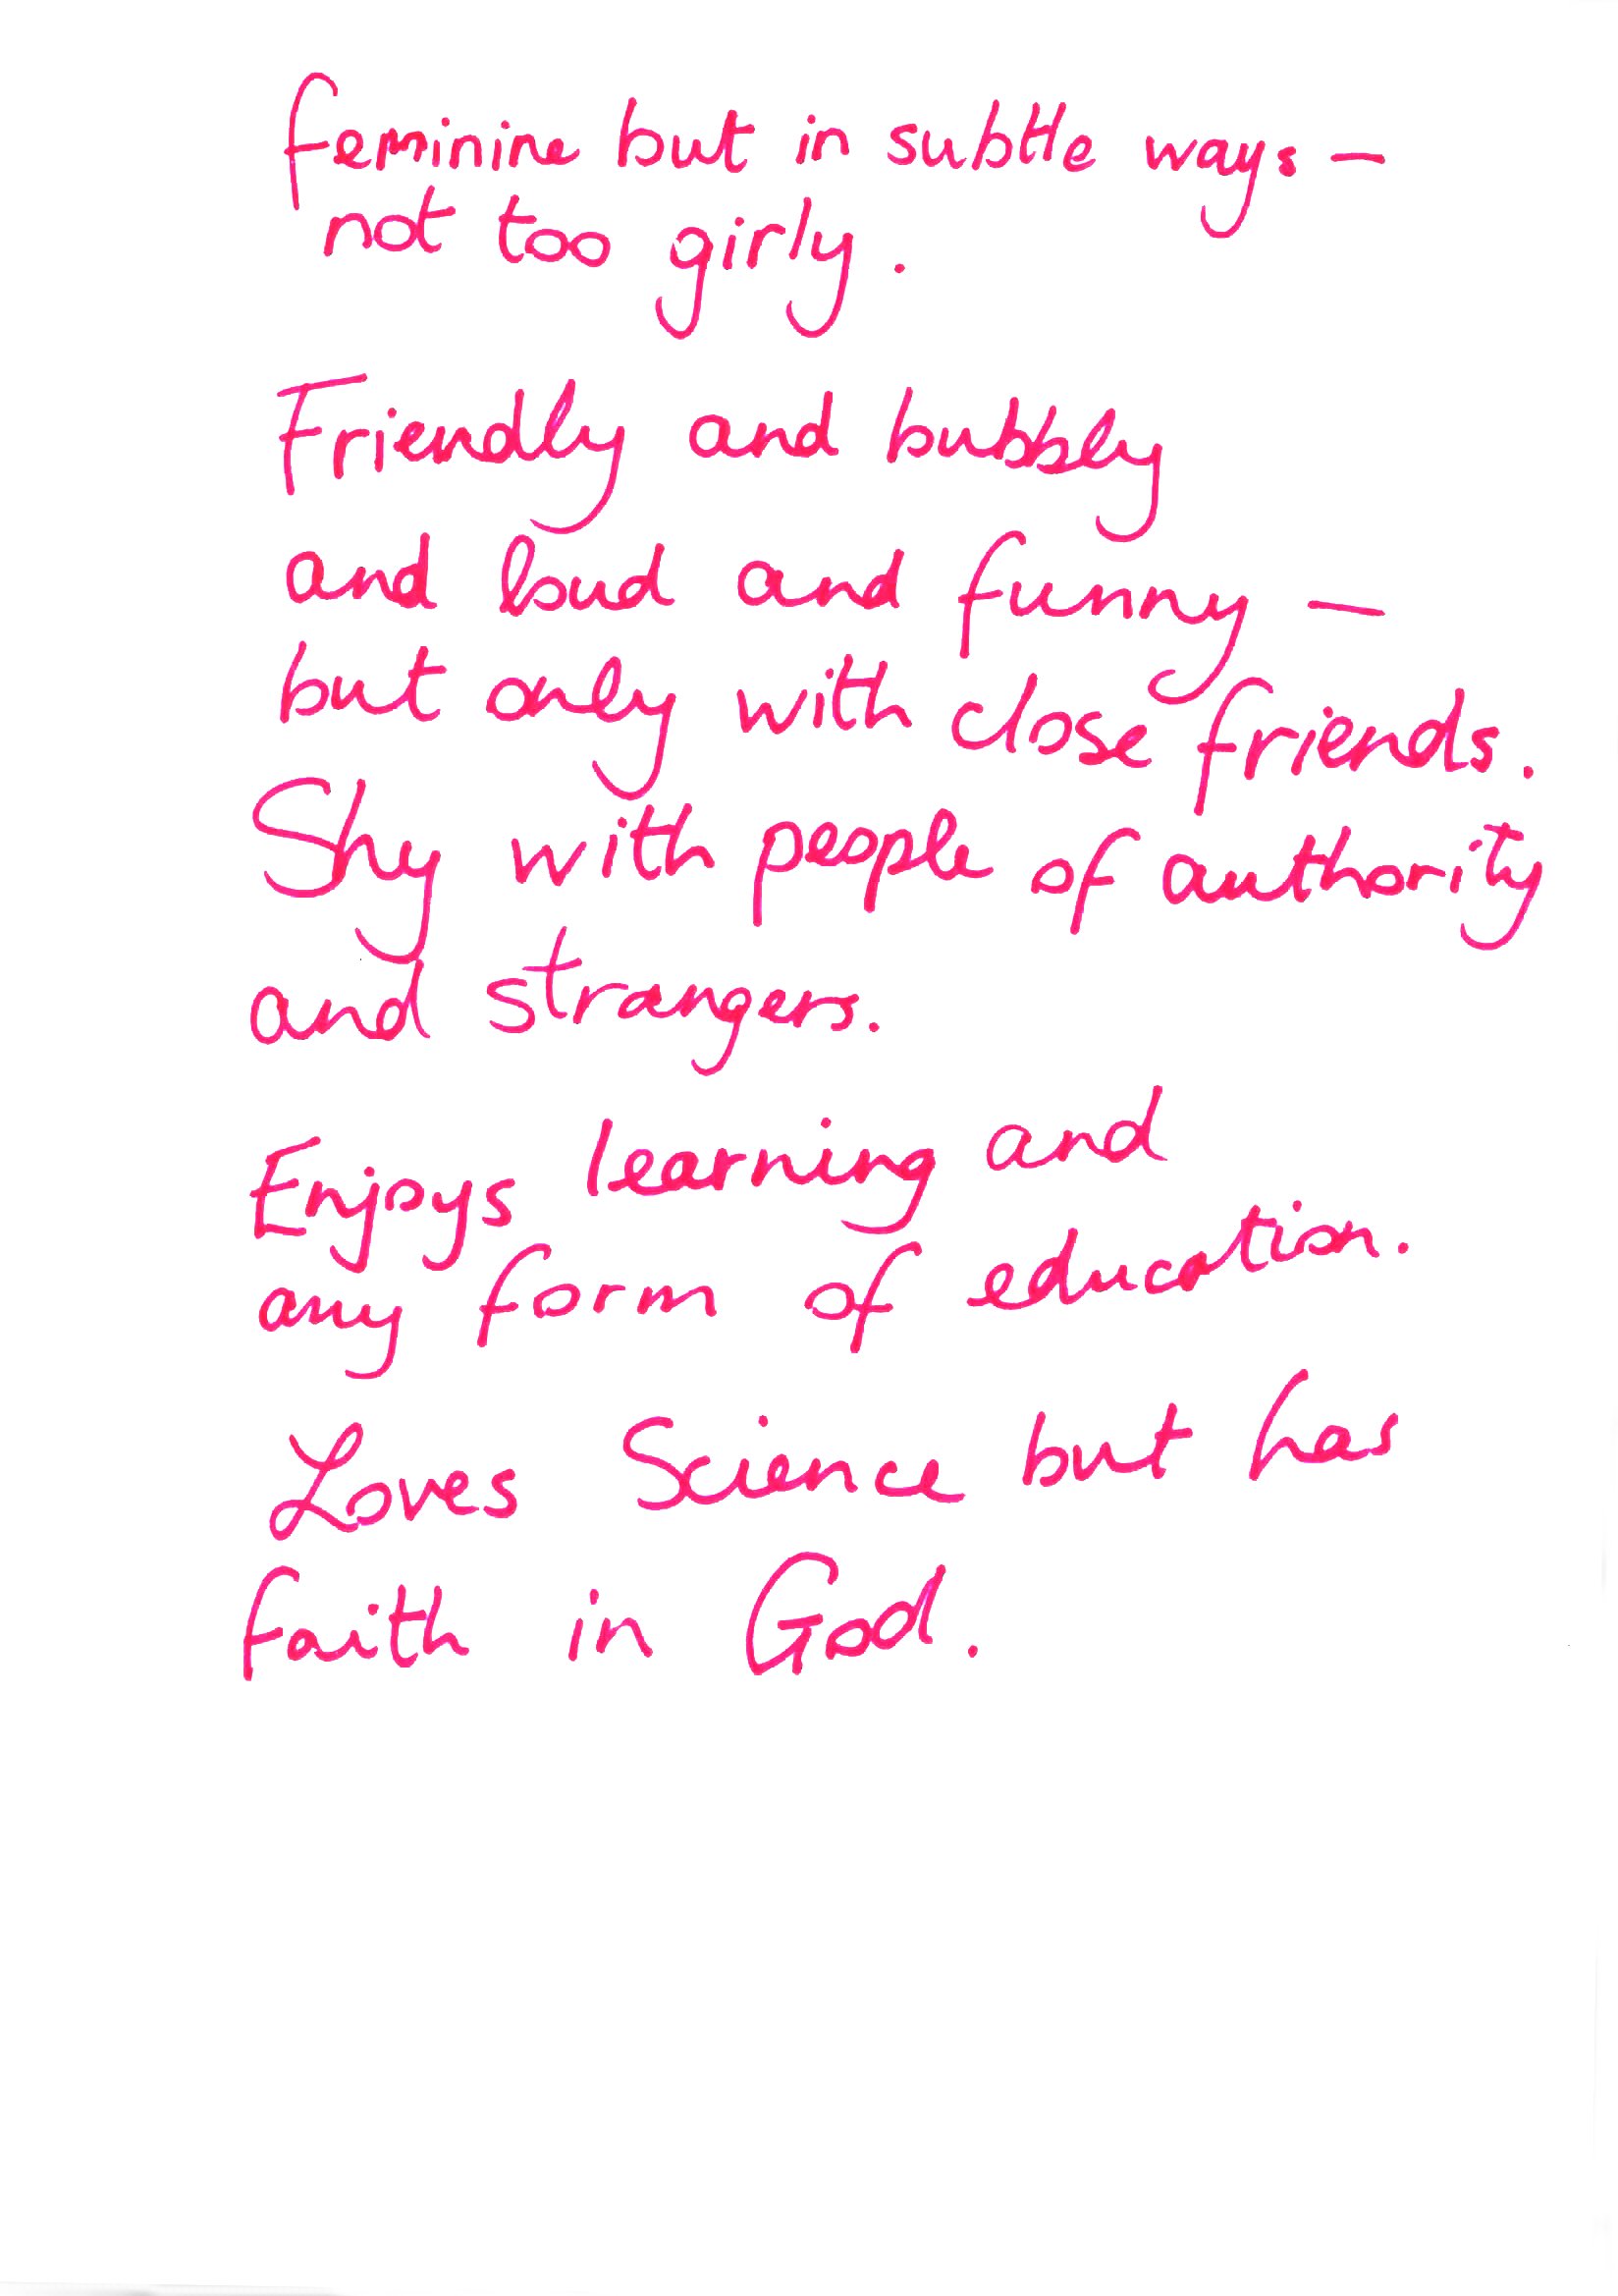 feminine but in subtle ways —
not too girly.
Friendly and bubbly
and loud and funny —
but only with close friends.
Shy with people of authority
and strangers.
Enjoys learning and
any form of education.
Loves Science but has
faith in God.